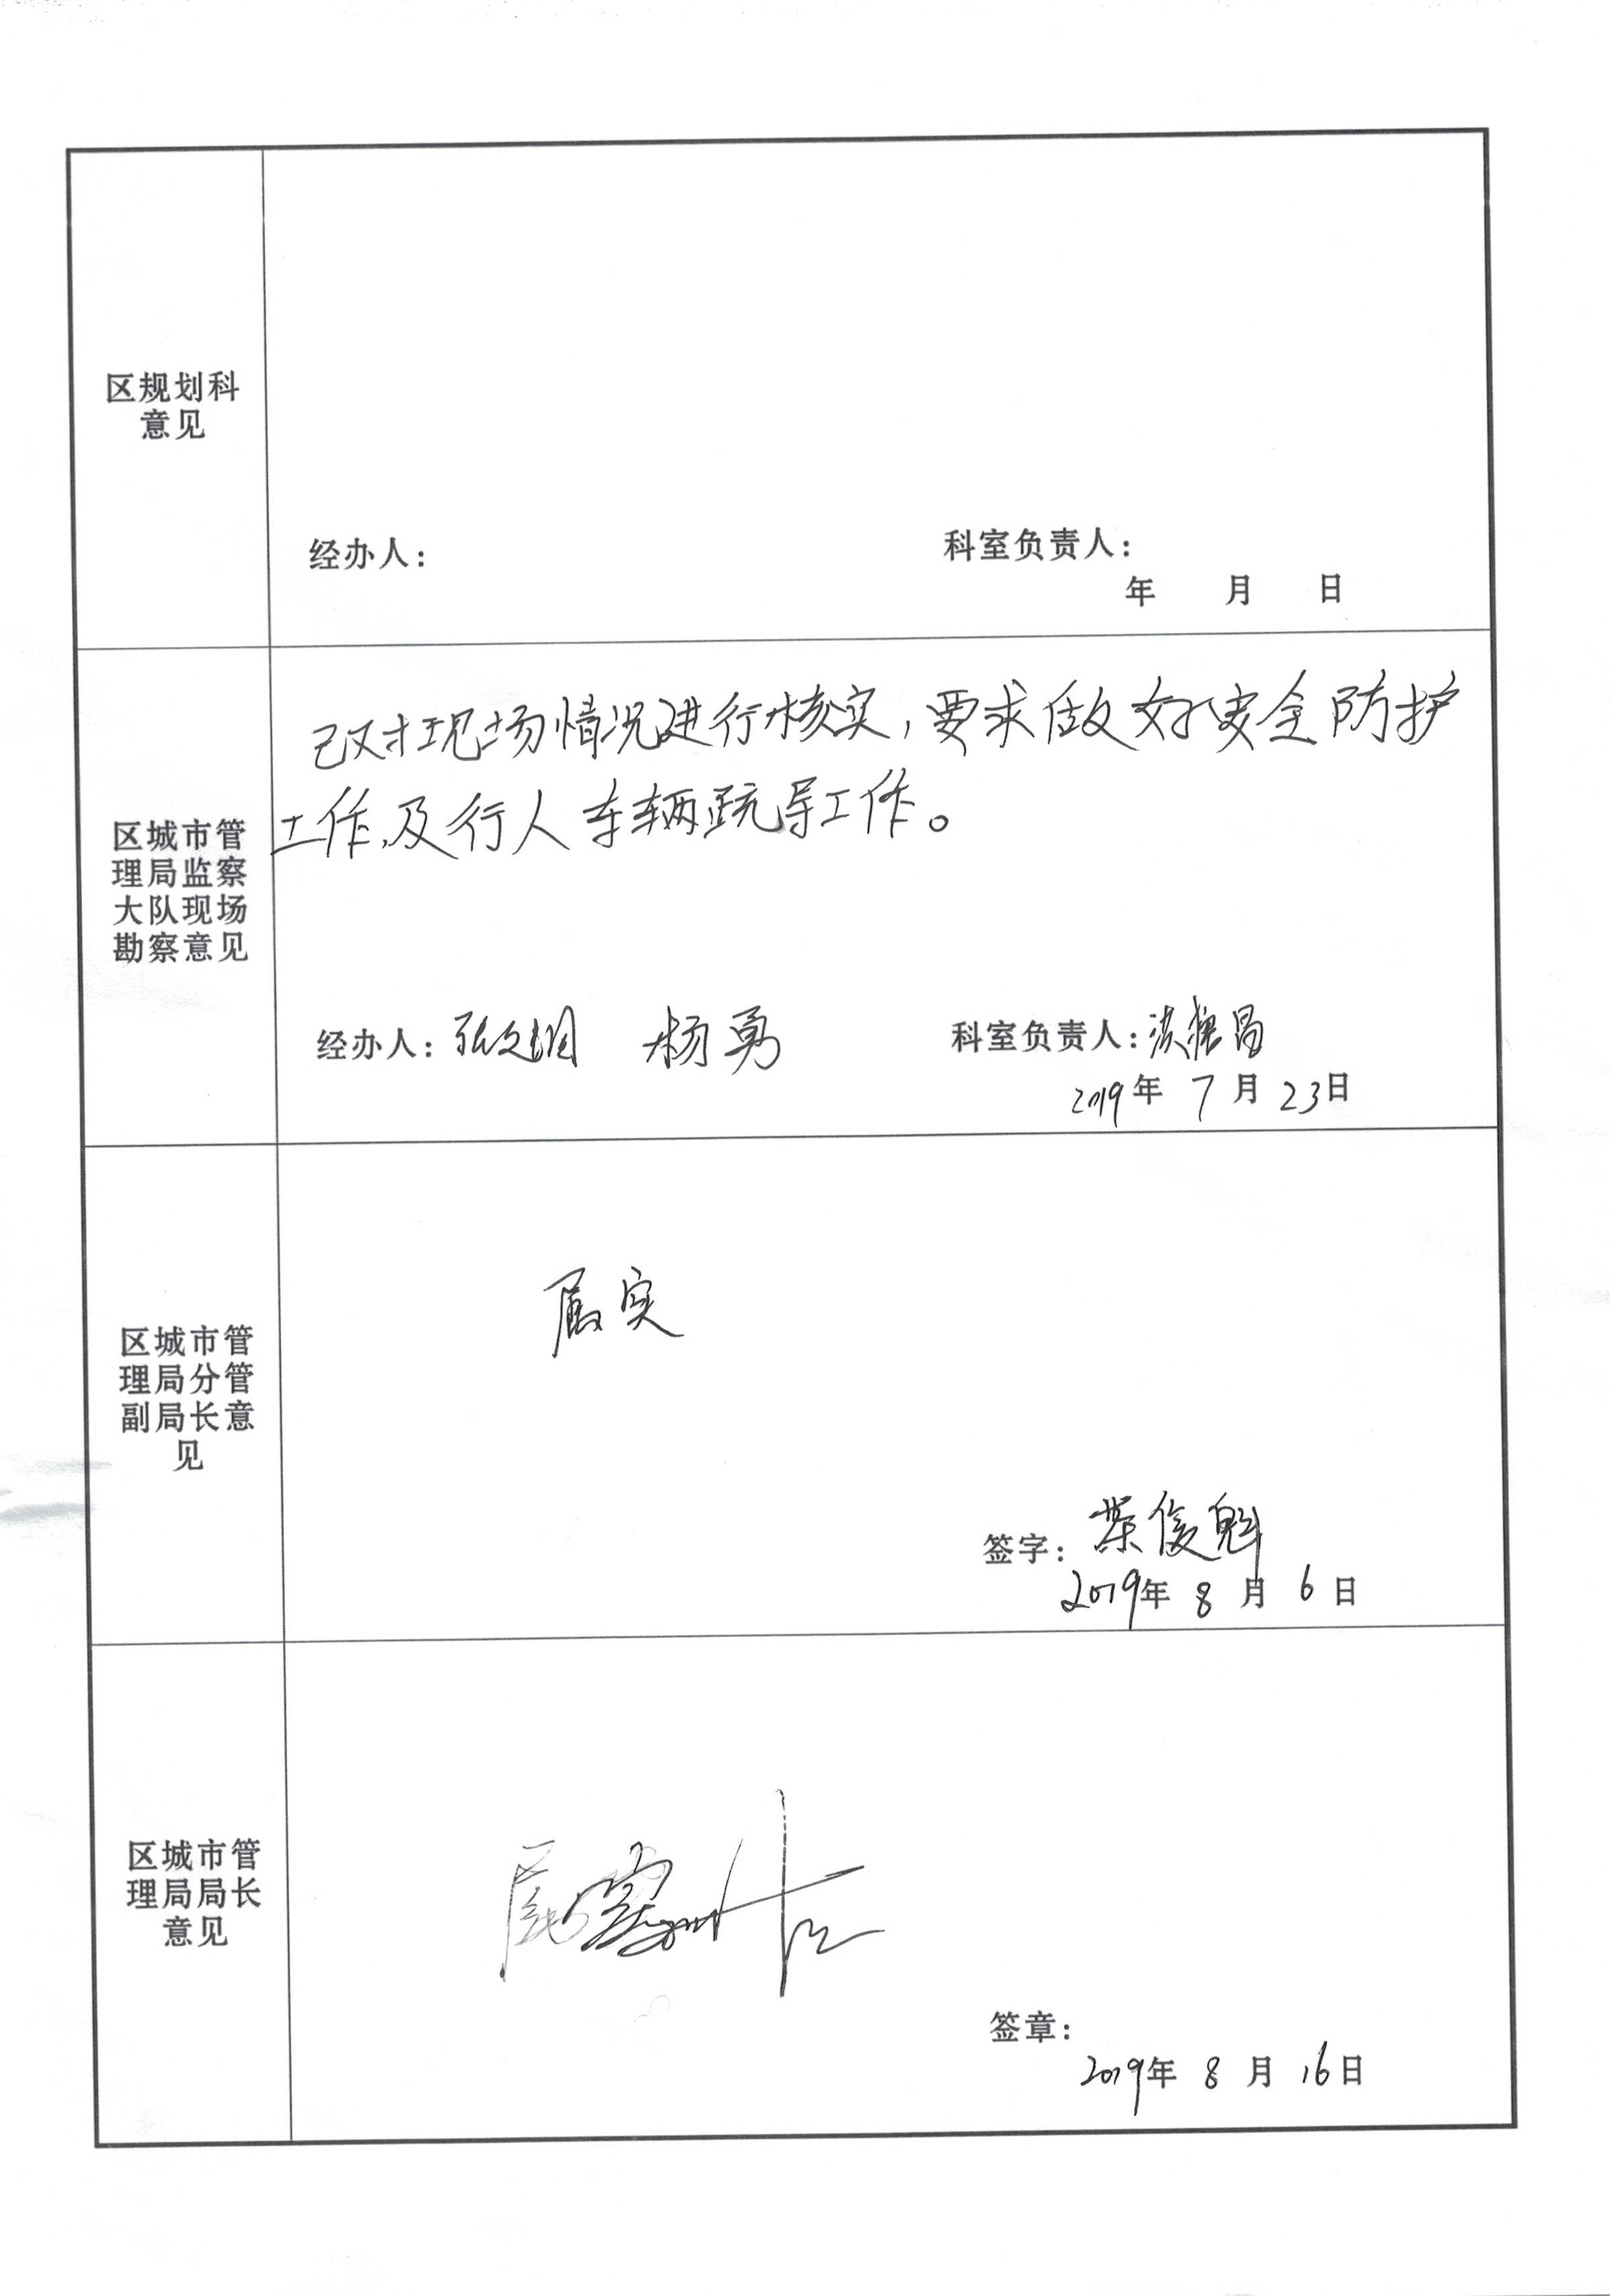 区规划科
意见
经办人：
科室负责人：
年 月 日
区城市管
理局监察
大队现场
勘察意见
已对现场情况进行核实，要求做好安全防护
工作及行人车辆疏导工作。
经办人： 杨勇
科室负责人：
2019年 7月 23日
区城市管
理局分管
副局长意
见
属实
签字：
2019年 8月 6日
区城市管
理局局长
意见
属实
签章：
2019年 8月 16日